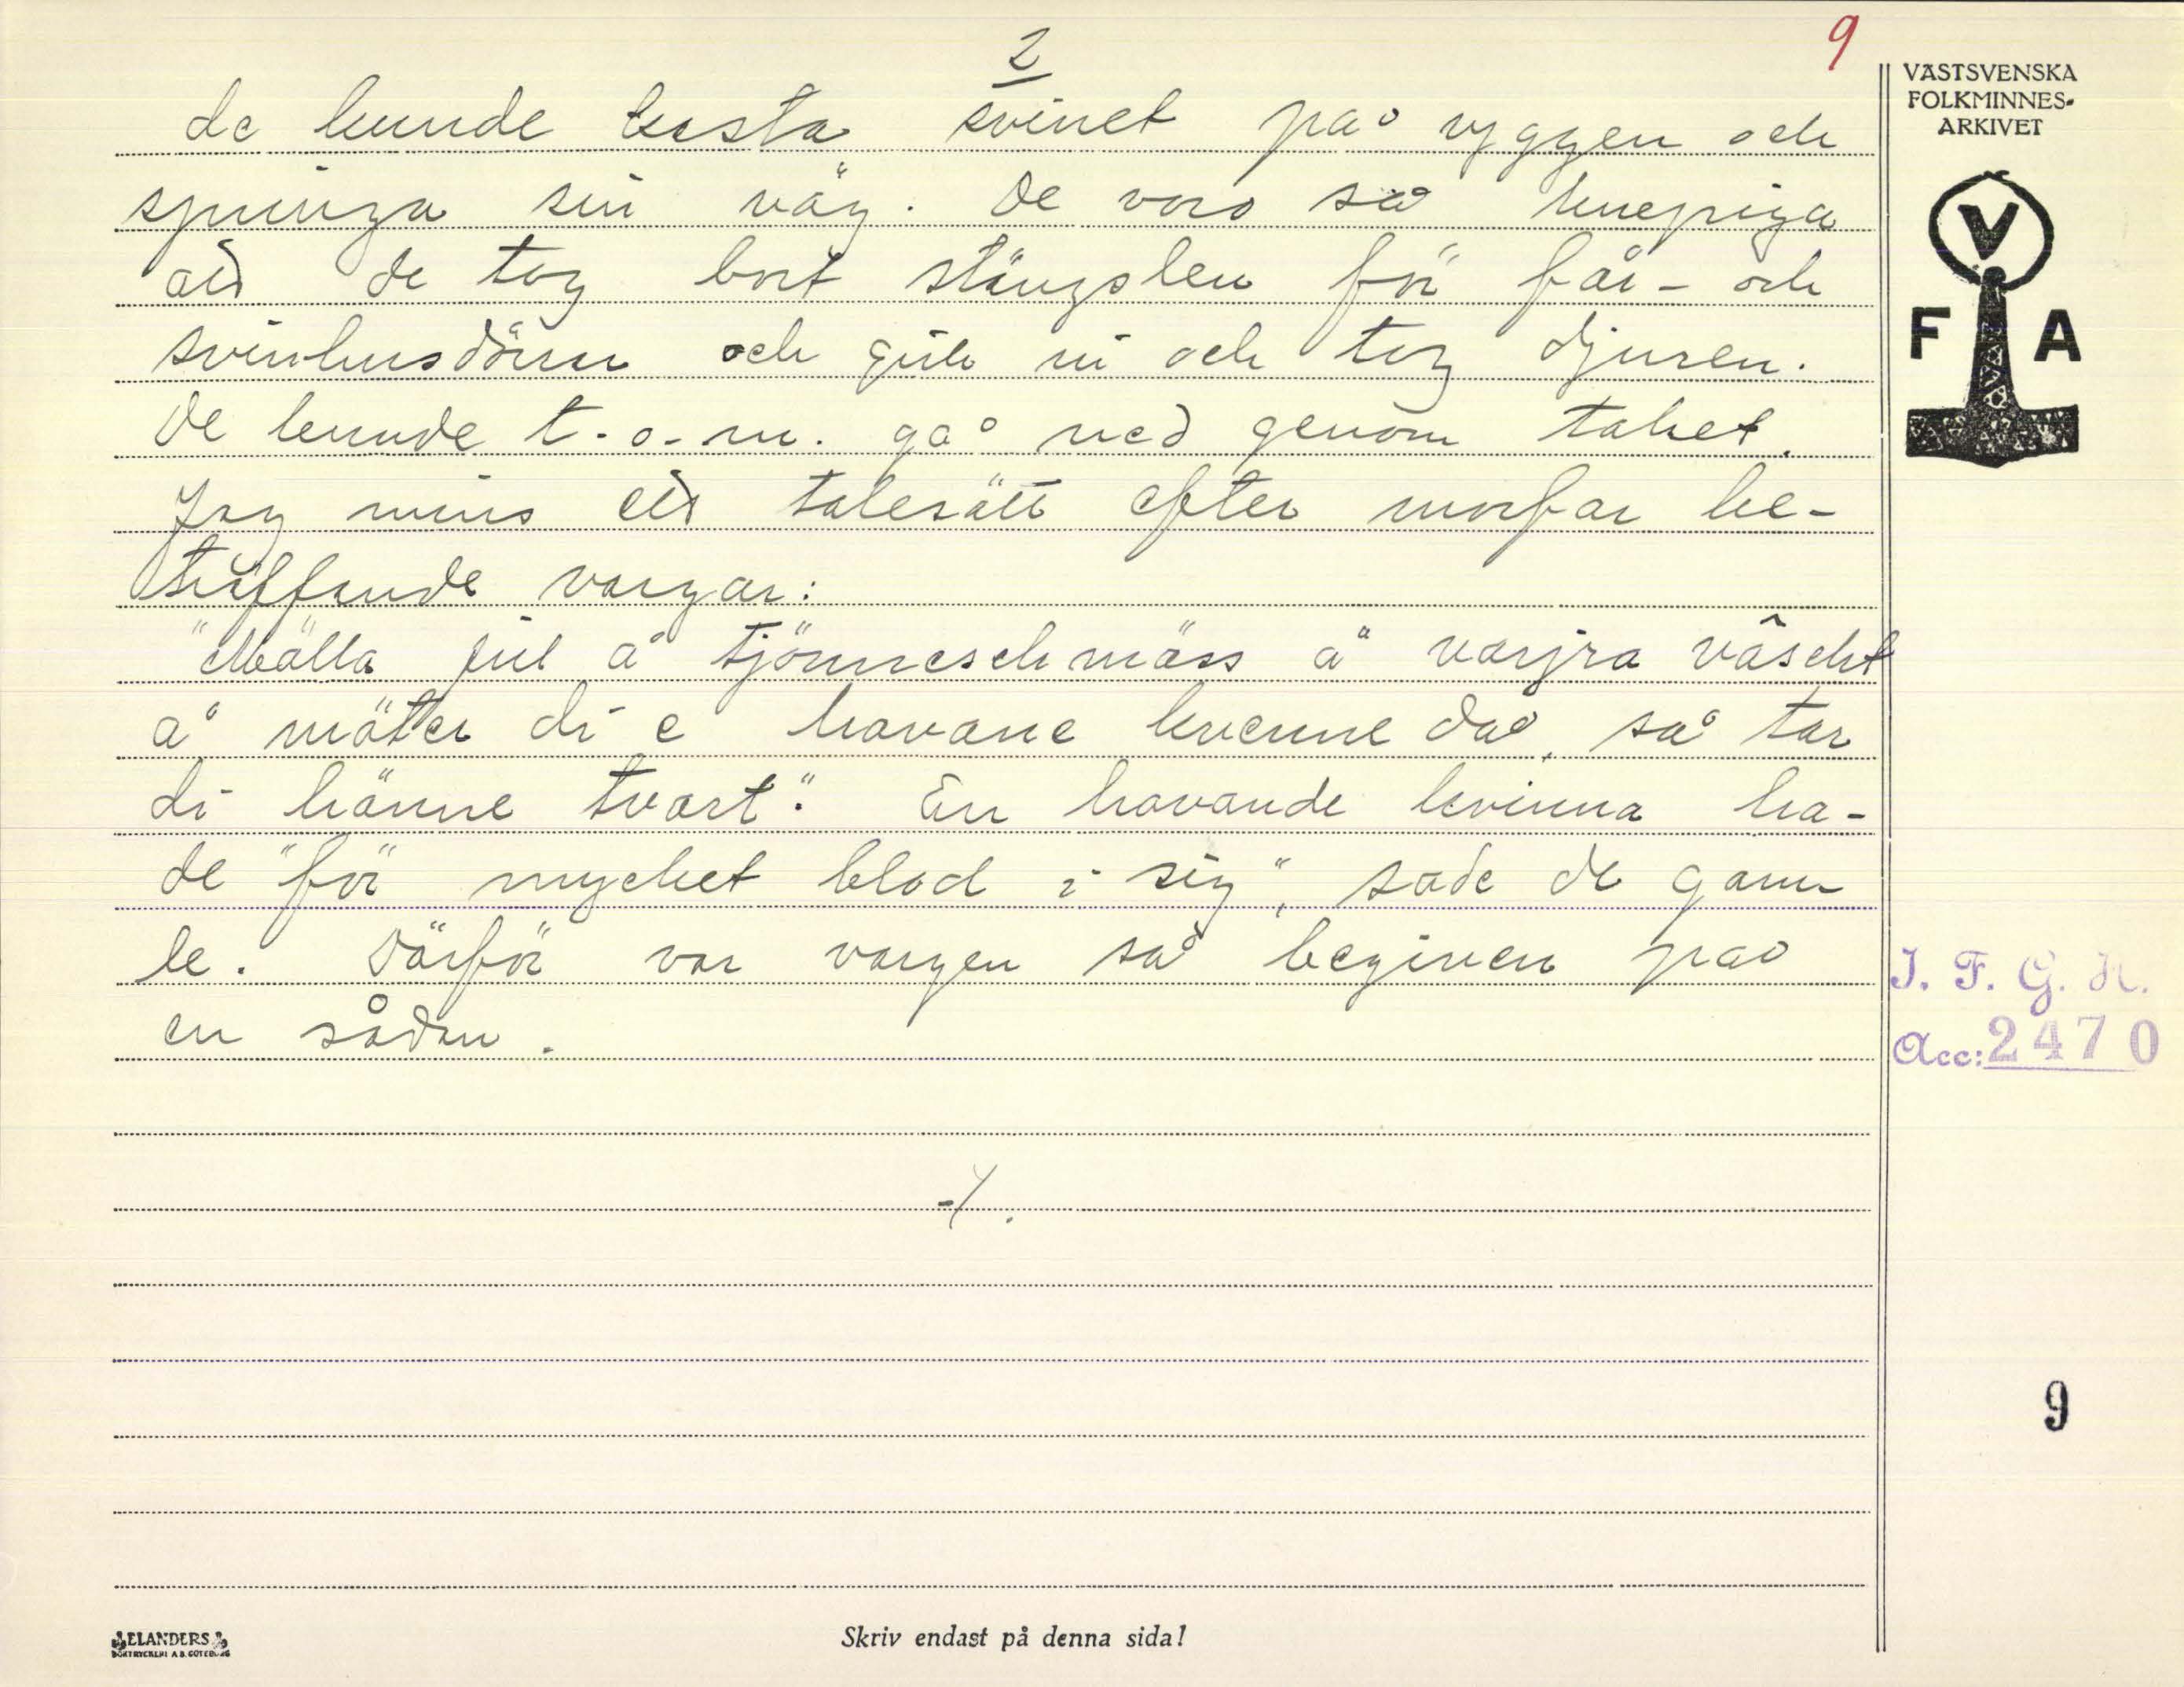 2
9
de kunde kasta svinet på ryggen och
springa sin väg. De voro så knepiga
att de tog bort stängslen för får- och
svinhusdörrn och gick in och tog djuren.
De kunde t.o.m. gå ned genom taket.
Jag mins ett talesätt efter morfar be-
träffande vargar:
"Mälla jul å tjönneschmäss ä varjra vâscht
å möter di e havane kvenne då, så tar
di hänne tvart." En havande kvinna ha-
de "för mycket blod i sig", sade de gam-
le. Därför var vargen så begiven på
en sådan.
-/.
VÄSTSVENSKA
FOLKMINNES-
ARKIVET
V
F A
I. F. G. H.
Acc: 2470
9
ELANDERS
BOKTRYCKERI A.B. GÖTEBORG
Skriv endast på denna sida!